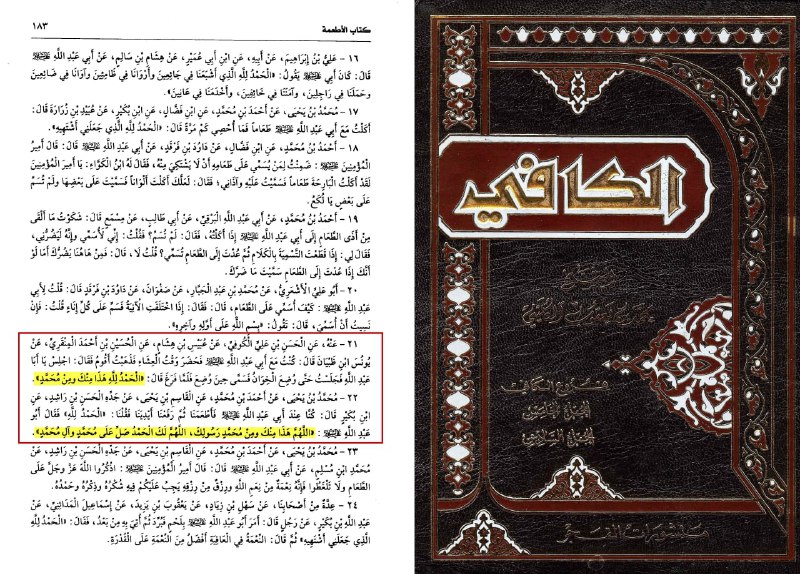 كتاب الأطعمة
١٨٣
١٦ - عَلِيُّ بْنُ إِبْرَاهِيمَ، عَنْ أَبِيهِ، عَنِ ابْنِ أَبِي عُمَيْرٍ، عَنْ هِشَامِ بْنِ سَالِمٍ، عَنْ أَبِي عَبْدِ اللَّهِ ﷺ
قَالَ: كَانَ أَبِي ﷺ يَقُولُ: «الْحَمْدُ لِلَّهِ الَّذِي أَشْبَعَنَا فِي جَائِعِينَ وَأَرْوَانَا فِي ظَامِئِينَ وَآوَانَا فِي ضَائِعِينَ
وَحَمَلَنَا فِي رَاجِلِينَ، وَآمَنَنَا فِي خَائِفِينَ، وَأَخْدَمَنَا فِي عَانِينَ».
١٧ - مُحَمَّدُ بْنُ يَحْيَى، عَنْ أَحْمَدَ بْنِ مُحَمَّدٍ، عَنِ ابْنِ فَضَّالٍ، عَنِ ابْنِ بُكَيْرٍ، عَنْ عُبَيْدِ بْنِ زُرَارَةَ قَالَ:
أَكَلْتُ مَعَ أَبِي عَبْدِ اللَّهِ ﷺ طَعَاماً فَمَا أُحْصِي كَمْ مَرَّةً قَالَ: «الْحَمْدُ لِلَّهِ الَّذِي جَعَلَنِي أَشْتَهِيهِ».
١٨ - أَحْمَدُ بْنُ مُحَمَّدٍ، عَنِ ابْنِ فَضَّالٍ، عَنْ دَاوُدَ بْنِ فَرْقَدٍ، عَنْ أَبِي عَبْدِ اللَّهِ ﷺ قَالَ: قَالَ أَمِيرُ
الْمُؤْمِنِينَ ﷺ: ضَمِنْتُ لِمَنْ يُسَمِّي عَلَى طَعَامِهِ أَنْ لَا يَشْتَكِيَ مِنْهُ، فَقَالَ لَهُ ابْنُ الْكَوَّاءِ: يَا أَمِيرَ الْمُؤْمِنِينَ
لَقَدْ أَكَلْتُ الْبَارِحَةَ طَعَاماً فَسَمَّيْتُ عَلَيْهِ وَآذَانِي؛ فَقَالَ: لَعَلَّكَ أَكَلْتَ أَلْوَاناً فَسَمَّيْتَ عَلَى بَعْضِهَا وَلَمْ تُسَمِّ
عَلَى بَعْضٍ يَا لُكَعُ.
١٩ - أَحْمَدُ بْنُ مُحَمَّدٍ، عَنْ أَبِي عَبْدِ اللَّهِ الْبَرْقِيِّ، عَنْ أَبِي طَالِبٍ، عَنْ مِسْمَعٍ قَالَ: شَكَوْتُ مَا أَلْقَى
مِنْ أَذَى الطَّعَامِ إِلَى أَبِي عَبْدِ اللَّهِ ﷺ إِذَا أَكَلْتُهُ، فَقَالَ: لَمْ تُسَمِّ؟ فَقُلْتُ: إِنِّي لَأُسَمِّي وَإِنَّهُ لَيَضُرُّنِي،
فَقَالَ لِي: إِذَا قَطَعْتَ التَّسْمِيَةَ بِالْكَلَامِ ثُمَّ عُدْتَ إِلَى الطَّعَامِ تُسَمِّي؟ قُلْتُ لَا، قَالَ: فَمِنْ هَاهُنَا يَضُرُّكَ أَمَا لَوْ
أَنَّكَ إِذَا عُدْتَ إِلَى الطَّعَامِ سَمَّيْتَ مَا ضَرَّكَ.
٢٠ - أَبُو عَلِيٍّ الْأَشْعَرِيُّ، عَنْ مُحَمَّدِ بْنِ عَبْدِ الْجَبَّارِ، عَنْ صَفْوَانَ، عَنْ دَاوُدَ بْنِ فَرْقَدٍ قَالَ: قُلْتُ لِأَبِي
عَبْدِ اللَّهِ ﷺ: كَيْفَ أُسَمِّي عَلَى الطَّعَامِ، قَالَ: فَقَالَ: إِذَا اخْتَلَفَتِ الْآنِيَةُ فَسَمِّ عَلَى كُلِّ إِنَاءٍ قُلْتُ: فَإِنْ
نَسِيتُ أَنْ أُسَمِّيَ، قَالَ: تَقُولُ: «بِسْمِ اللَّهِ عَلَى أَوَّلِهِ وَآخِرِهِ».
٢١ - عَنْهُ، عَنِ الْحَسَنِ بْنِ عَلِيٍّ الْكُوفِيِّ، عَنْ عُبَيْسِ بْنِ هِشَامٍ، عَنِ الْحُسَيْنِ بْنِ أَحْمَدَ الْمِنْقَرِيِّ، عَنْ
يُونُسَ ابْنِ ظَبْيَانَ قَالَ: كُنْتُ مَعَ أَبِي عَبْدِ اللَّهِ ﷺ فَحَضَرَ وَقْتُ الْعِشَاءِ فَذَهَبْتُ أَقُومُ فَقَالَ: اجْلِسْ يَا أَبَا
عَبْدِ اللَّهِ فَجَلَسْتُ حَتَّى وُضِعَ الْخِوَانُ فَسَمَّى حِينَ وُضِعَ فَلَمَّا فَرَغَ قَالَ: «الْحَمْدُ لِلَّهِ هَذَا مِنْكَ وَمِنْ مُحَمَّدٍ».
٢٢ - مُحَمَّدُ بْنُ يَحْيَى، عَنْ أَحْمَدَ بْنِ مُحَمَّدٍ، عَنِ الْقَاسِمِ بْنِ يَحْيَى، عَنْ جَدِّهِ الْحَسَنِ بْنِ رَاشِدٍ، عَنِ
ابْنِ بُكَيْرٍ قَالَ: كُنَّا عِنْدَ أَبِي عَبْدِ اللَّهِ ﷺ فَأَطْعَمَنَا ثُمَّ رَفَعْنَا أَيْدِيَنَا فَقُلْنَا: «الْحَمْدُ لِلَّهِ» فَقَالَ أَبُو
عَبْدِ اللَّهِ ﷺ: «اللَّهُمَّ هَذَا مِنْكَ وَمِنْ مُحَمَّدٍ رَسُولِكَ، اللَّهُمَّ لَكَ الْحَمْدُ صَلِّ عَلَى مُحَمَّدٍ وَآلِ مُحَمَّدٍ».
٢٣ - مُحَمَّدُ بْنُ يَحْيَى، عَنْ أَحْمَدَ بْنِ مُحَمَّدٍ، عَنِ الْقَاسِمِ بْنِ يَحْيَى، عَنْ جَدِّهِ الْحَسَنِ بْنِ رَاشِدٍ، عَنْ
مُحَمَّدِ ابْنِ مُسْلِمٍ، عَنْ أَبِي عَبْدِ اللَّهِ ﷺ قَالَ: قَالَ أَمِيرُ الْمُؤْمِنِينَ ﷺ: اذْكُرُوا اللَّهَ عَزَّ وَجَلَّ عَلَى
الطَّعَامِ وَلَا تَلْغَطُوا فَإِنَّهُ نِعْمَةٌ مِنْ نِعَمِ اللَّهِ وَرِزْقٌ مِنْ رِزْقِهِ يَجِبُ عَلَيْكُمْ فِيهِ شُكْرُهُ وَذِكْرُهُ وَحَمْدُهُ.
٢٤ - عِدَّةٌ مِنْ أَصْحَابِنَا، عَنْ سَهْلِ بْنِ زِيَادٍ، عَنْ يَعْقُوبَ بْنِ يَزِيدَ، عَنْ إِسْمَاعِيلَ الْمَدَائِنِيِّ، عَنْ
عَبْدِ اللَّهِ بْنِ بُكَيْرٍ، عَنْ رَجُلٍ قَالَ: أَمَرَ أَبُو عَبْدِ اللَّهِ ﷺ بِلَحْمٍ فَبُرِّدَ ثُمَّ أُتِيَ بِهِ مِنْ بَعْدُ، فَقَالَ: «الْحَمْدُ لِلَّهِ
الَّذِي جَعَلَنِي أَشْتَهِيهِ» ثُمَّ قَالَ: النِّعْمَةُ فِي الْعَافِيَةِ أَفْضَلُ مِنَ النِّعْمَةِ عَلَى الْقُدْرَةِ.
الكافي
فروع الكافي
الجزء الخامس
الجزء السادس
منشورات الفجر